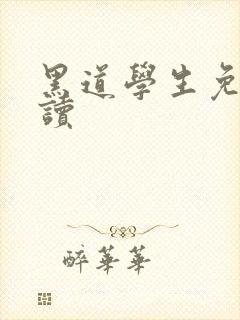 黑道學生免
讀
醉華華